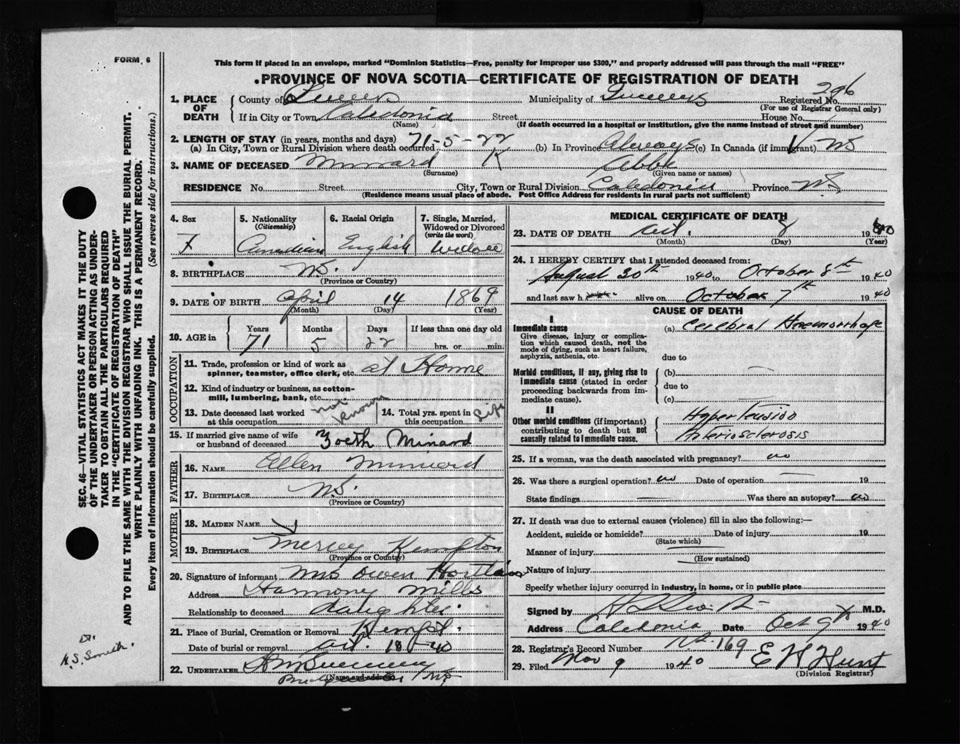 FORM 6
This form if placed in an envelope, marked "Dominion Statistics—Free, penalty for improper use $300," and properly addressed will pass through the mail "FREE"
PROVINCE OF NOVA SCOTIA—CERTIFICATE OF REGISTRATION OF DEATH
1. PLACE OF DEATH County of Queens Municipality of Queens Registered No. 296
(For use of Registrar General only)
If in City or Town Caledonia Street House No.
(Name) (If death occurred in a hospital or institution, give the name instead of street and number)
2. LENGTH OF STAY (in years, months and days) 71-5-22
(a) In City, Town or Rural Division where death occurred (b) In Province Always (c) In Canada (if immigrant) NS
3. NAME OF DECEASED Minard K Abbie
(Surname) (Given name or names)
RESIDENCE No. Street City, Town or Rural Division Caledonia Province NS
(Residence means usual place of abode. Post Office Address for residents in rural parts not sufficient)
4. Sex F
5. Nationality (Citizenship) Canadian
6. Racial Origin English
7. Single, Married, Widowed or Divorced (write the word)
8. BIRTHPLACE N.S.
(Province or Country)
9. DATE OF BIRTH April 14 1869
(Month) (Day) (Year)
10. AGE in Years 71 Months 5 Days 22 If less than one day old hrs. or min.
OCCUPATION
11. Trade, profession or kind of work as spinner, teamster, office clerk, etc. at Home
12. Kind of industry or business, as cotton-mill, lumbering, bank, etc.
13. Date deceased last worked at this occupation not known
14. Total yrs. spent in this occupation Life
15. If married give name of wife or husband of deceased Minard
FATHER
16. NAME Ellen
17. BIRTHPLACE N.S.
MOTHER
18. MAIDEN NAME
19. BIRTHPLACE Kempton
(Province or Country)
20. Signature of informant Mrs Owen
Address Harmony Mills
Relationship to deceased daughter
21. Place of Burial, Cremation or Removal Kempt.
Date of burial or removal 40
22. UNDERTAKER
(Name and address)
MEDICAL CERTIFICATE OF DEATH
23. DATE OF DEATH Oct. 8 1940
(Month) (Day) (Year)
24. I HEREBY CERTIFY that I attended deceased from:
August 30th 1940 to October 8th 1940
and last saw h alive on October 7th 1940
CAUSE OF DEATH
I
Immediate cause (a) Cerebral Haemorrhage
Give disease, injury or complication which caused death, not the mode of dying, such as heart failure, asphyxia, asthenia, etc.
due to
Morbid conditions, if any, giving rise to immediate cause (stated in order proceeding backwards from immediate cause).
(b)
due to
(c)
II
Other morbid conditions (if important) contributing to death but not causally related to immediate cause.
Hypertension
Arteriosclerosis
25. If a woman, was the death associated with pregnancy? no
26. Was there a surgical operation? no Date of operation 19
State findings Was there an autopsy? no
27. If death was due to external causes (violence) fill in also the following:—
Accident, suicide or homicide? Date of injury 19
(State which)
Manner of injury
(How sustained)
Nature of injury
Specify whether injury occurred in industry, in home, or in public place
Signed by M.D.
Address Caledonia Date Oct 9th 1940
28. Registrar's Record Number No. 169
29. Filed Nov 9 1940 E H Hunt
(Division Registrar)
SEC. 46—VITAL STATISTICS ACT MAKES IT THE DUTY
OF THE UNDERTAKER OR PERSON ACTING AS UNDER-
TAKER TO OBTAIN ALL THE PARTICULARS REQUIRED
IN THE "CERTIFICATE OF REGISTRATION OF DEATH"
AND TO FILE THE SAME WITH THE DIVISION REGISTRAR WHO SHALL ISSUE THE BURIAL PERMIT.
WRITE PLAINLY WITH UNFADING INK. THIS IS A PERMANENT RECORD.
Every item of information should be carefully supplied. (See reverse side for instructions.)
Dr.
H.S. Smith.